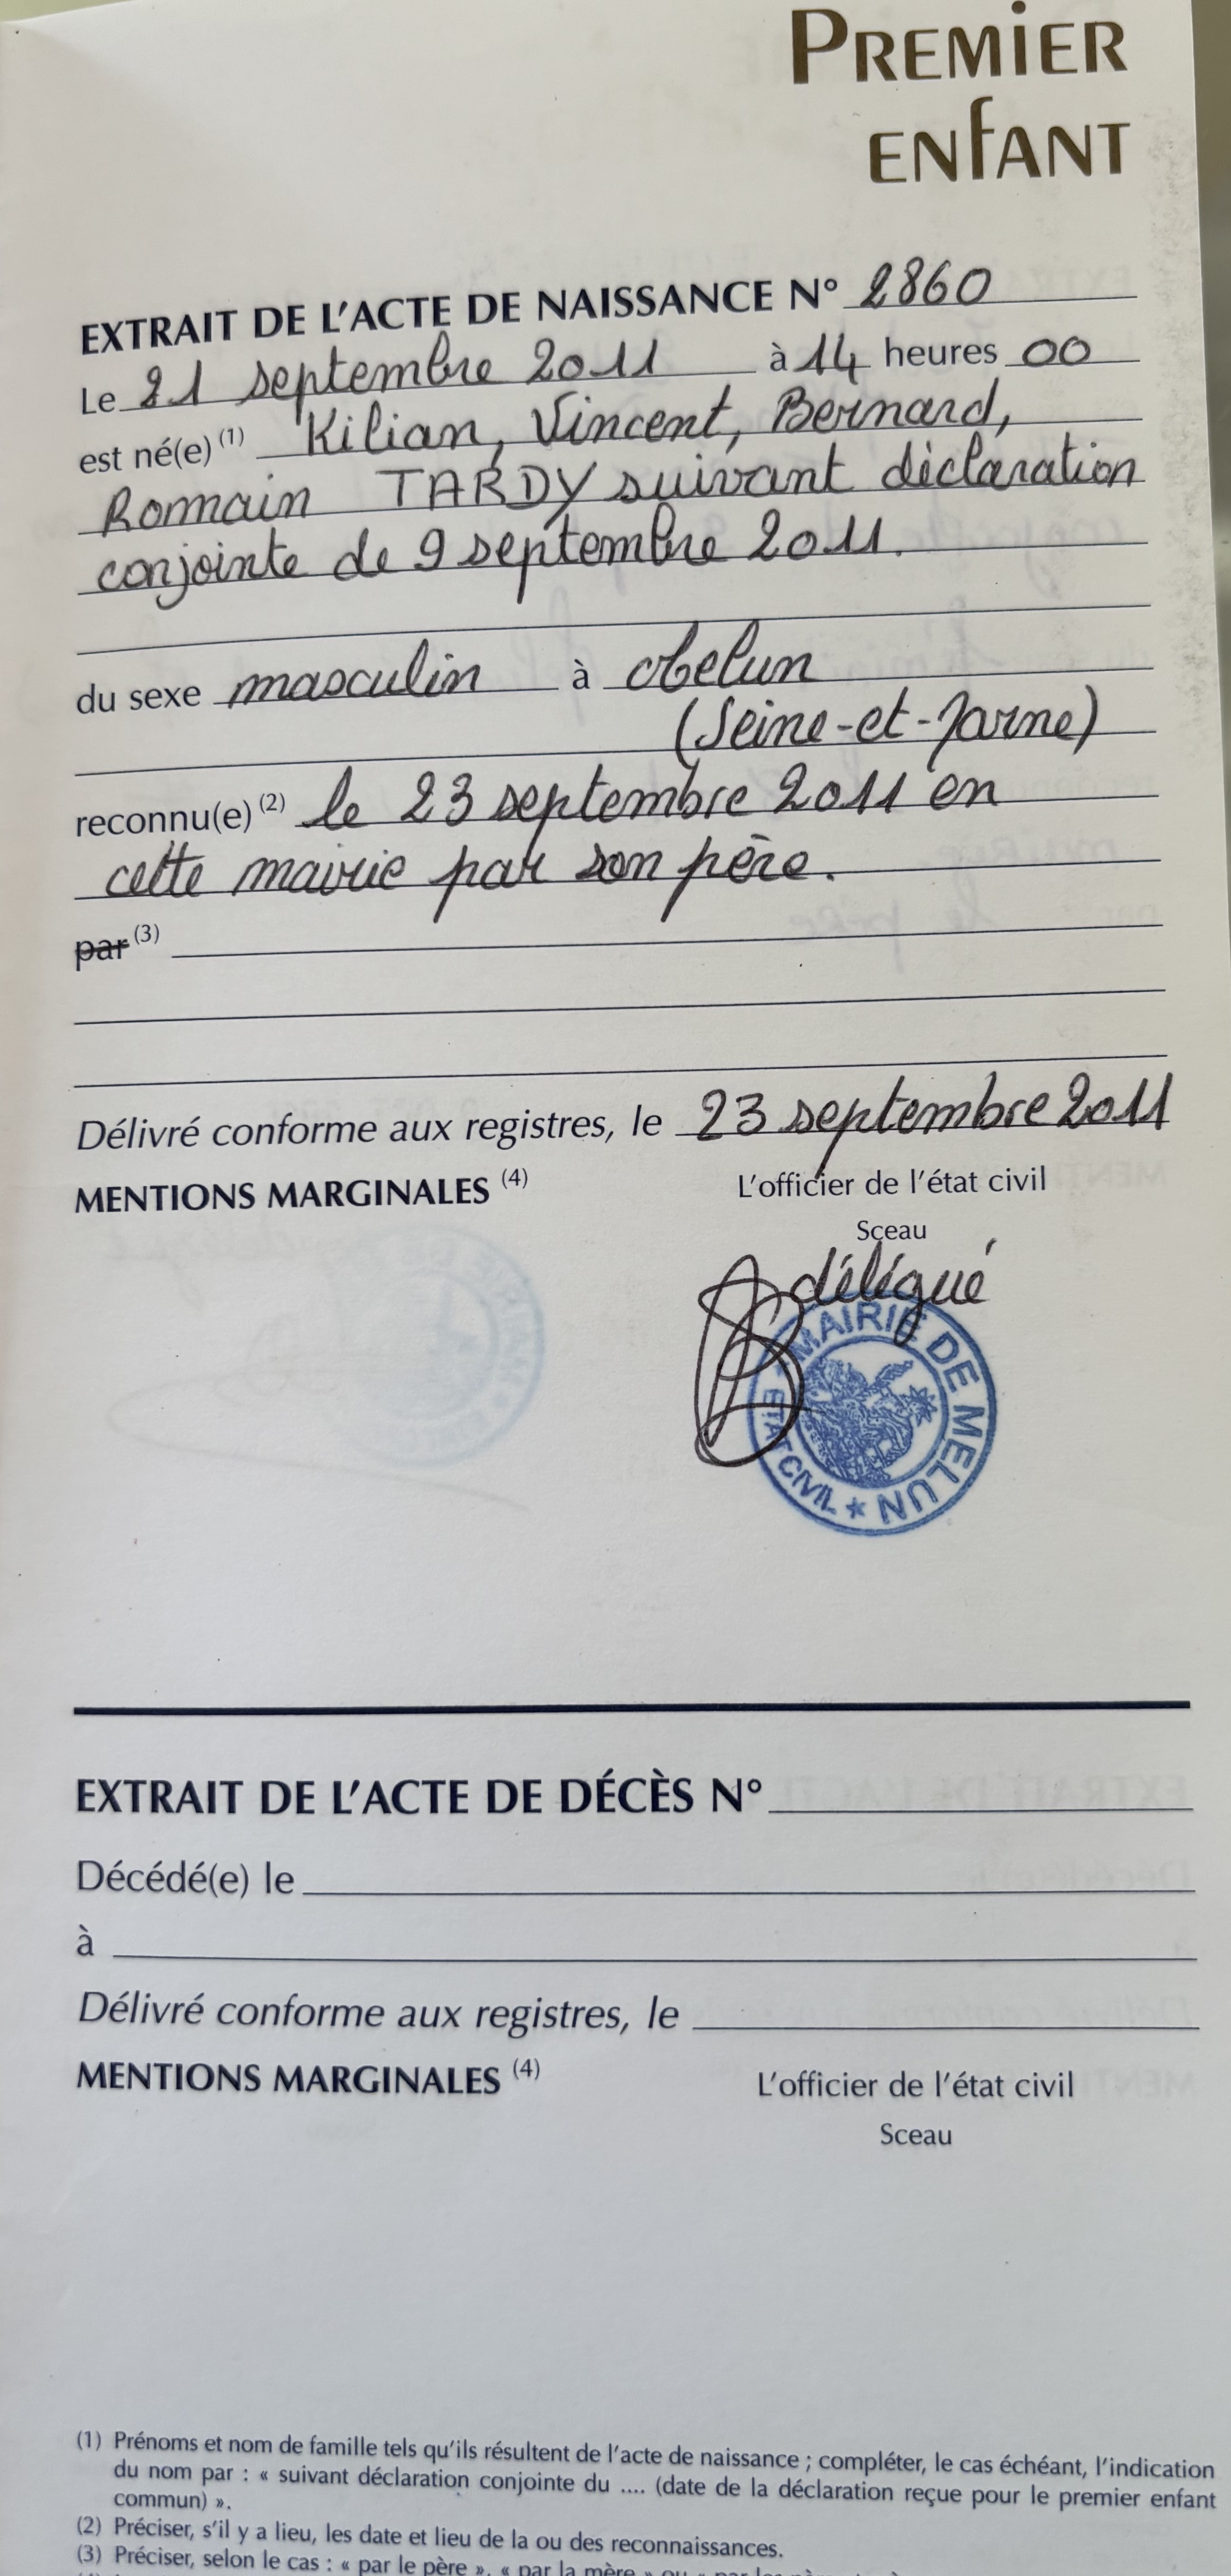 PREMIER
ENFANT
EXTRAIT DE L'ACTE DE NAISSANCE N° 2860
Le 21 septembre 2011 à 14 heures 00
est né(e) (1) Kilian, Vincent, Bernard,
Romain TARDY suivant déclaration
conjointe de 9 septembre 2011.
du sexe masculin à Melun
(Seine-et-Marne)
reconnu(e) (2) le 23 septembre 2011 en
cette mairie par son père.
par (3)
Délivré conforme aux registres, le 23 septembre 2011
MENTIONS MARGINALES (4) L'officier de l'état civil
Sceau
délégué
MAIRIE DE MELUN
ETAT CIVIL
EXTRAIT DE L'ACTE DE DÉCÈS N°
Décédé(e) le
à
Délivré conforme aux registres, le
MENTIONS MARGINALES (4) L'officier de l'état civil
Sceau
(1) Prénoms et nom de famille tels qu'ils résultent de l'acte de naissance ; compléter, le cas échéant, l'indication
du nom par : « suivant déclaration conjointe du .... (date de la déclaration reçue pour le premier enfant
commun) ».
(2) Préciser, s'il y a lieu, les date et lieu de la ou des reconnaissances.
(3) Préciser, selon le cas : « par le père », « par la mère » ou